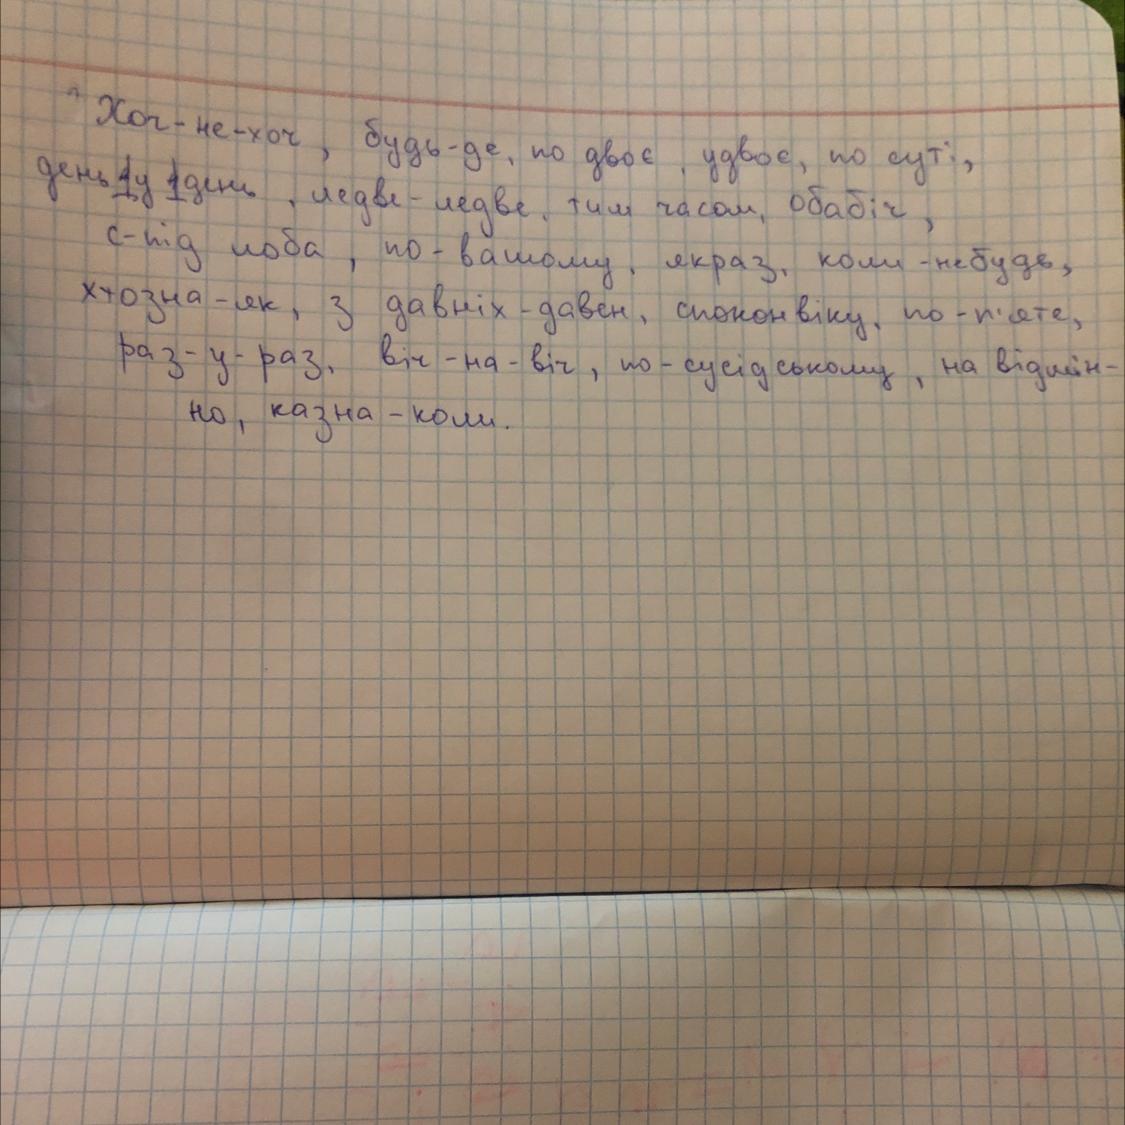 Хоч-не-хоч, будь-де, по двоє, удвоє, по суті,
день у день, ледве-ледве, тим часом, обабіч,
с-під лоба, по-вашому, якраз, коли-небудь,
хтозна-як, з давніх-давен, споконвіку, по-п'яте,
раз-у-раз, віч-на-віч, по-сусідському, на відмін-
но, казна-коли.